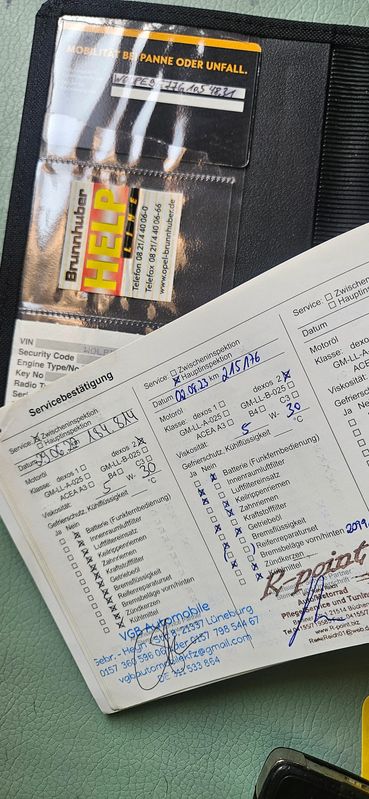 MOBILITÄT BEI PANNE ODER UNFALL.
Brunnhuber
HELP
LINE
Telefon 08 21/4 40 06-0
Telefax 08 21/4 40 06-66
www.opel-brunnhuber.de
VIN
Security Code
Engine Type/No
Key No
Radio
Servicebestätigung
Service Zwischeninspektion
Hauptinspektion
Datum km 184 814
Motoröl
Klasse: dexos 1 dexos 2
GM-LL-A-025 GM-LL-B-025
ACEA A3 B4 C3
Viskosität: 5 W- 30
Gefrierschutz, Kühlflüssigkeit °C
Ja Nein
Batterie (Funkfernbedienung)
Innenraumluftfilter
Luftfiltereinsatz
Keilrippenriemen
Zahnriemen
Kraftstofffilter
Getriebeöl
Bremsflüssigkeit
Reifenreparaturset
Bremsbeläge vorn/hinten
Zündkerzen
Kühlmittel
VGB Automobile
21337 Lüneburg
0157 360 596 00 oder 0157 798 544 67
vgbautomobilekfz@gmail.com
533 864
Service Zwischeninspektion
Hauptinspektion
Datum 09.09.23 km 215 176
Motoröl
Klasse: dexos 1 dexos 2
GM-LL-A-025 GM-LL-B-025
ACEA A3 B4 C3
Viskosität: 5 W- 30
Gefrierschutz, Kühlflüssigkeit °C
Ja Nein
Batterie (Funkfernbedienung)
Innenraumluftfilter
Luftfiltereinsatz
Keilrippenriemen
Zahnriemen
Kraftstofffilter
Getriebeöl
Bremsflüssigkeit
Reifenreparaturset
Bremsbeläge vorn/hinten
Zündkerzen
R-point
Pflegeservice und Tuning
www.R-point.biz
Service Zwischeninspektion
Hauptinspektion
Datum
Motoröl
Klasse: dexos
GM-LL-A-025
ACEA A3
Viskosität:
Gefrierschutz
Ja Nein